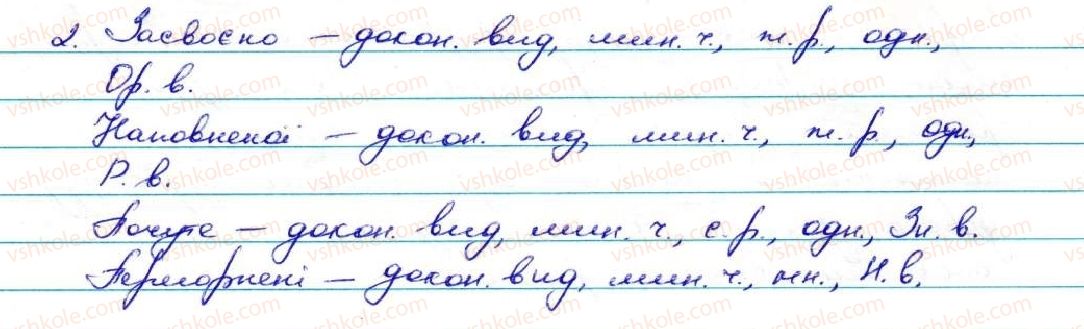 2. Засвоєно – докон. вид, мин. ч., ж. р., одн.,
Ор. в.
Наповненої – докон. вид, мин. ч., ж. р., одн.,
Р. в.
Почуте – докон. вид, мин. ч., с. р., одн., Зн. в.
– докон. вид, мин. ч., мн., Н. в.